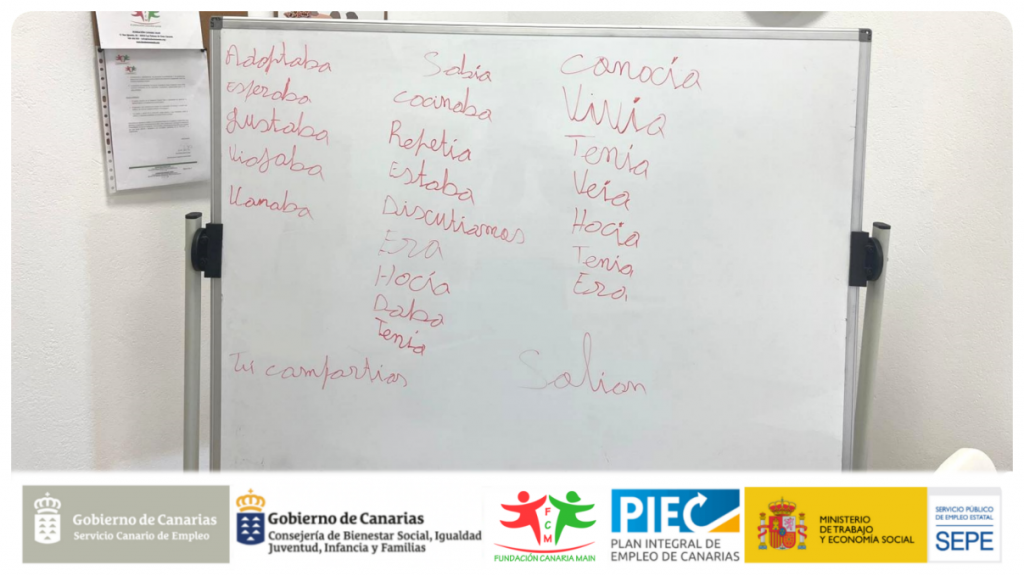 Adoptaba
esperaba
gustaba
Viajaba
Llamaba
Sabia
cocinaba
Repetia
Estaba
Discutiamos
Era
Hacía
Daba
Tenia
Conocía
Vivia
Tenia
Veia
Hacía
Tenia
Era
Tú compartias
Salian
Gobierno de Canarias
Servicio Canario de Empleo
Gobierno de Canarias
Consejería de Bienestar Social, Igualdad
Juventud, Infancia y Familias
FCM
FUNDACIÓN CANARIA MAIN
PIEC
PLAN INTEGRAL DE
EMPLEO DE CANARIAS
MINISTERIO
DE TRABAJO
Y ECONOMÍA SOCIAL
SERVICIO PÚBLICO
DE EMPLEO ESTATAL
SEPE